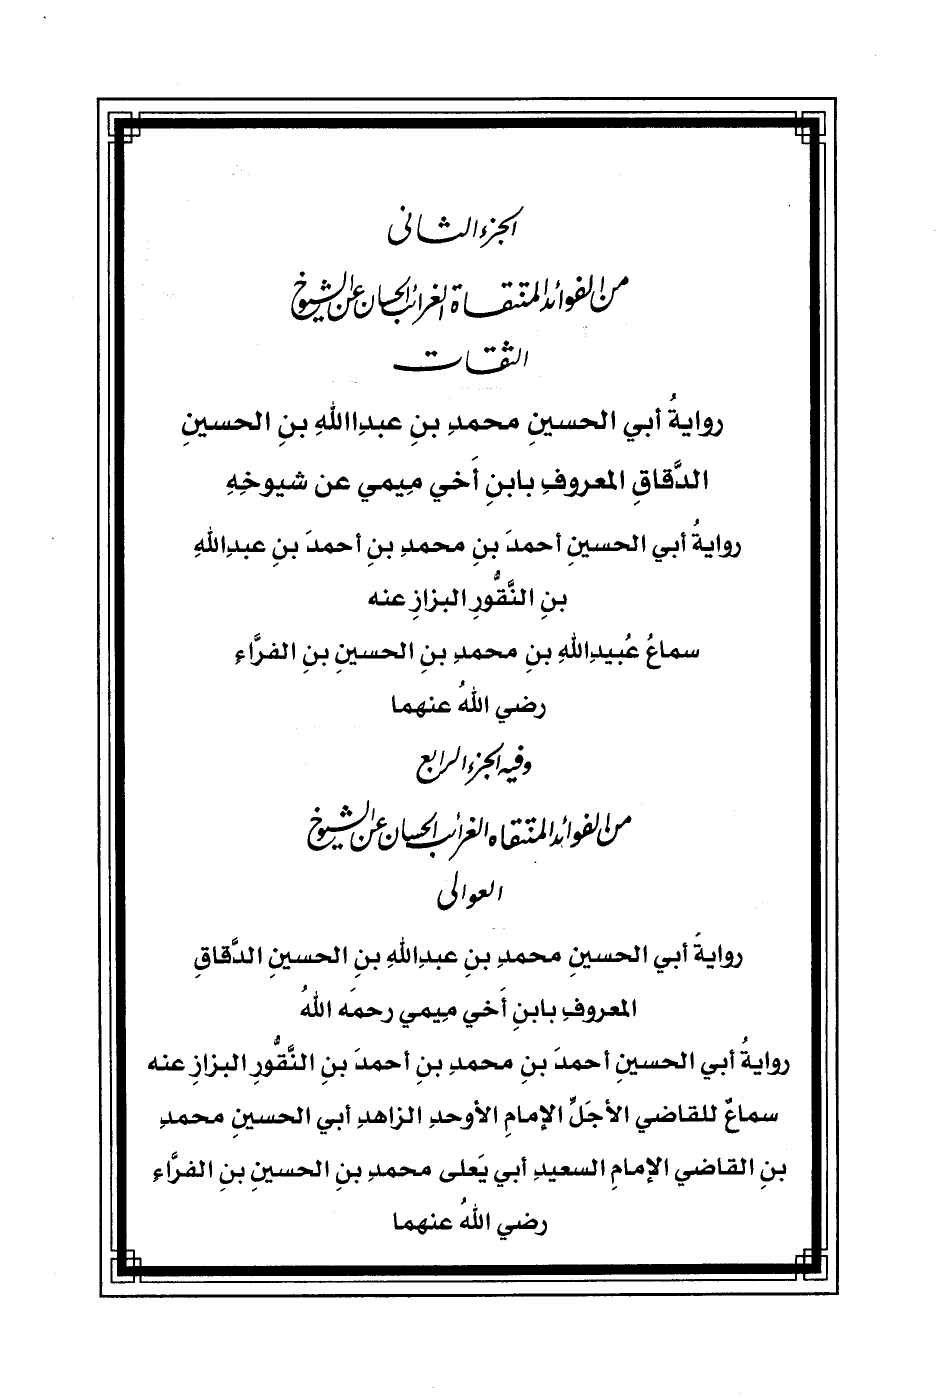 الجزء الثاني
من الفوائد المنتقاة الغرائب الحسان عن الشيوخ
الثقات
روايةُ أبي الحسينِ محمدِ بنِ عبدِاللهِ بنِ الحسينِ
الدَّقاقِ المعروفِ بابنِ أَخي مِيمي عن شيوخِهِ
روايةُ أبي الحسينِ أحمدَ بنِ محمدِ بنِ أحمدَ بنِ عبدِاللهِ
بنِ النَّقُّورِ البزازِ عنه
سماعُ عُبيدِاللهِ بنِ محمدِ بنِ الحسينِ بنِ الفرَّاءِ
رضي اللهُ عنهما
وفيه الجزء الرابع
من الفوائد المنتقاه الغرائب الحسان عن الشيوخ
العوالي
روايةَ أبي الحسينِ محمدِ بنِ عبدِاللهِ بنِ الحسينِ الدَّقاقِ
المعروفِ بابنِ أَخي مِيمي رحمَه اللهُ
روايةُ أبي الحسينِ أحمدَ بنِ محمدِ بنِ أحمدَ بنِ النَّقُّورِ البزازِ عنه
سماعٌ للقاضي الأجَلِّ الإمامِ الأوحدِ الزاهدِ أبي الحسينِ محمدِ
بنِ القاضي الإمامِ السعيدِ أبي يَعلى محمدِ بنِ الحسينِ بنِ الفرَّاءِ
رضي اللهُ عنهما